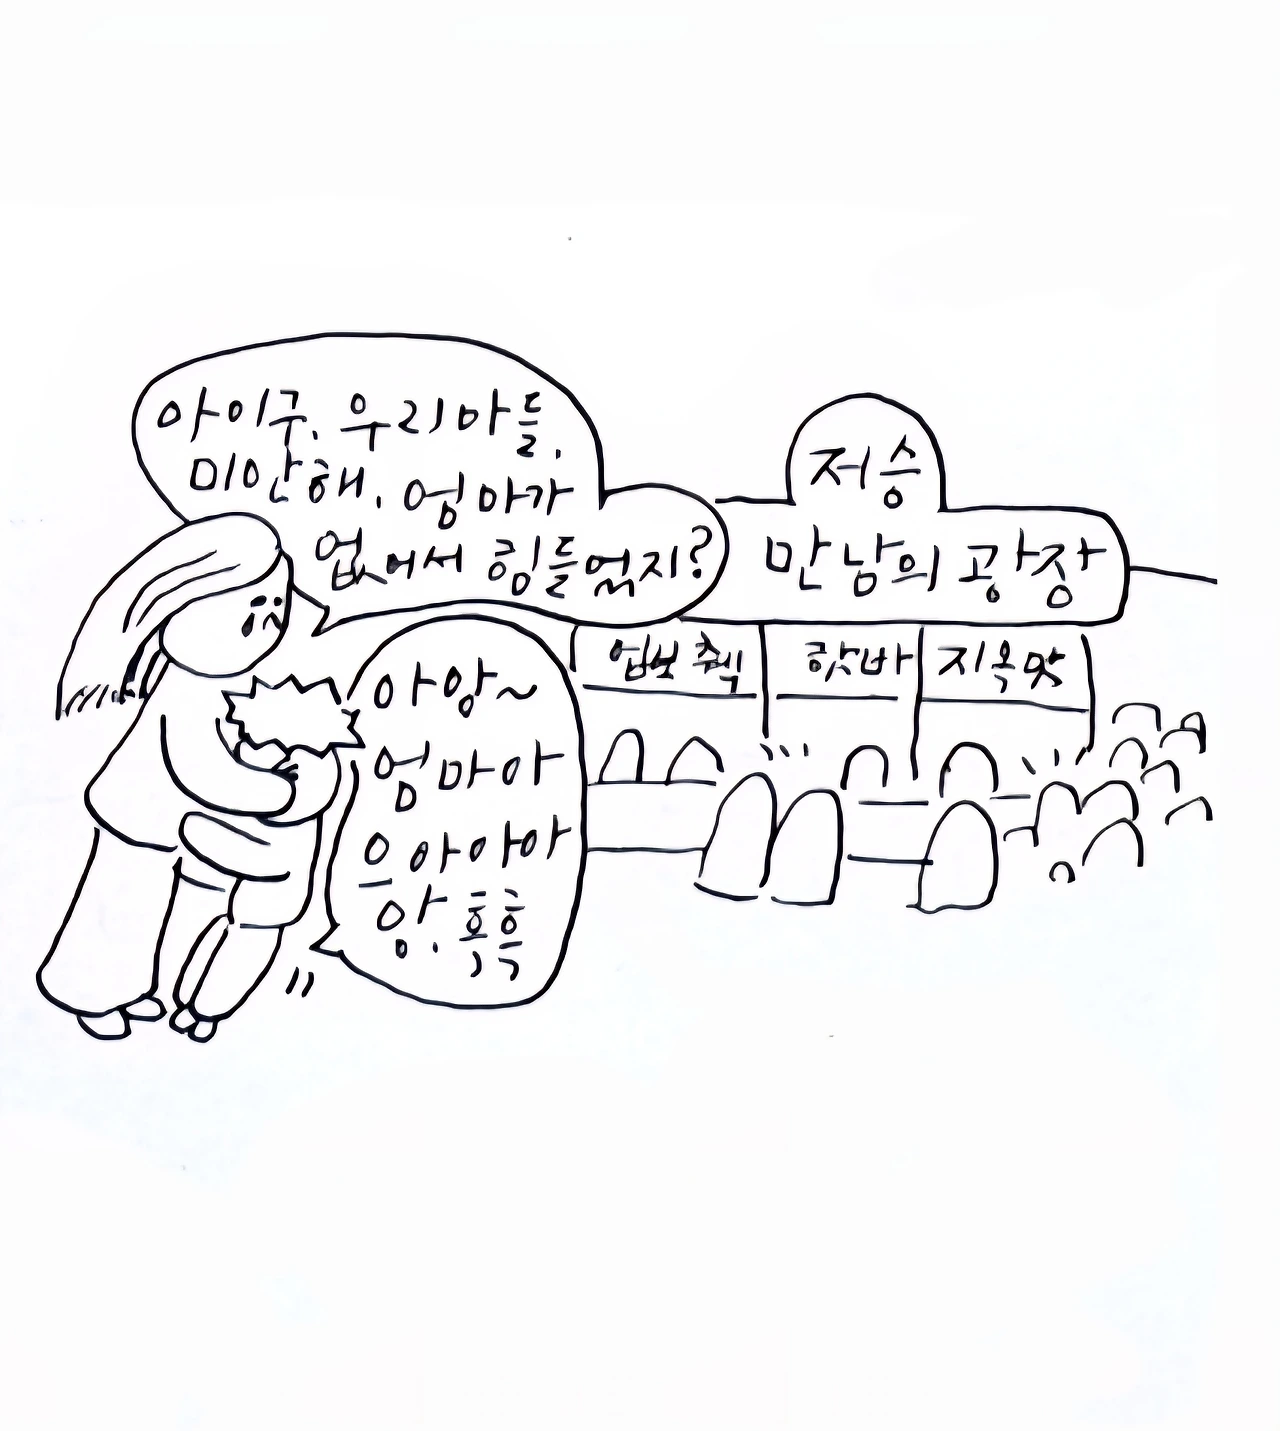 아이구, 우리 아들,
미안해, 엄마가
없어서 힘들었지?
저승
만남의 광장
업보 췍
핫바
지옥맛
아앙~
엄마아
으아아아
앙. 흑흑